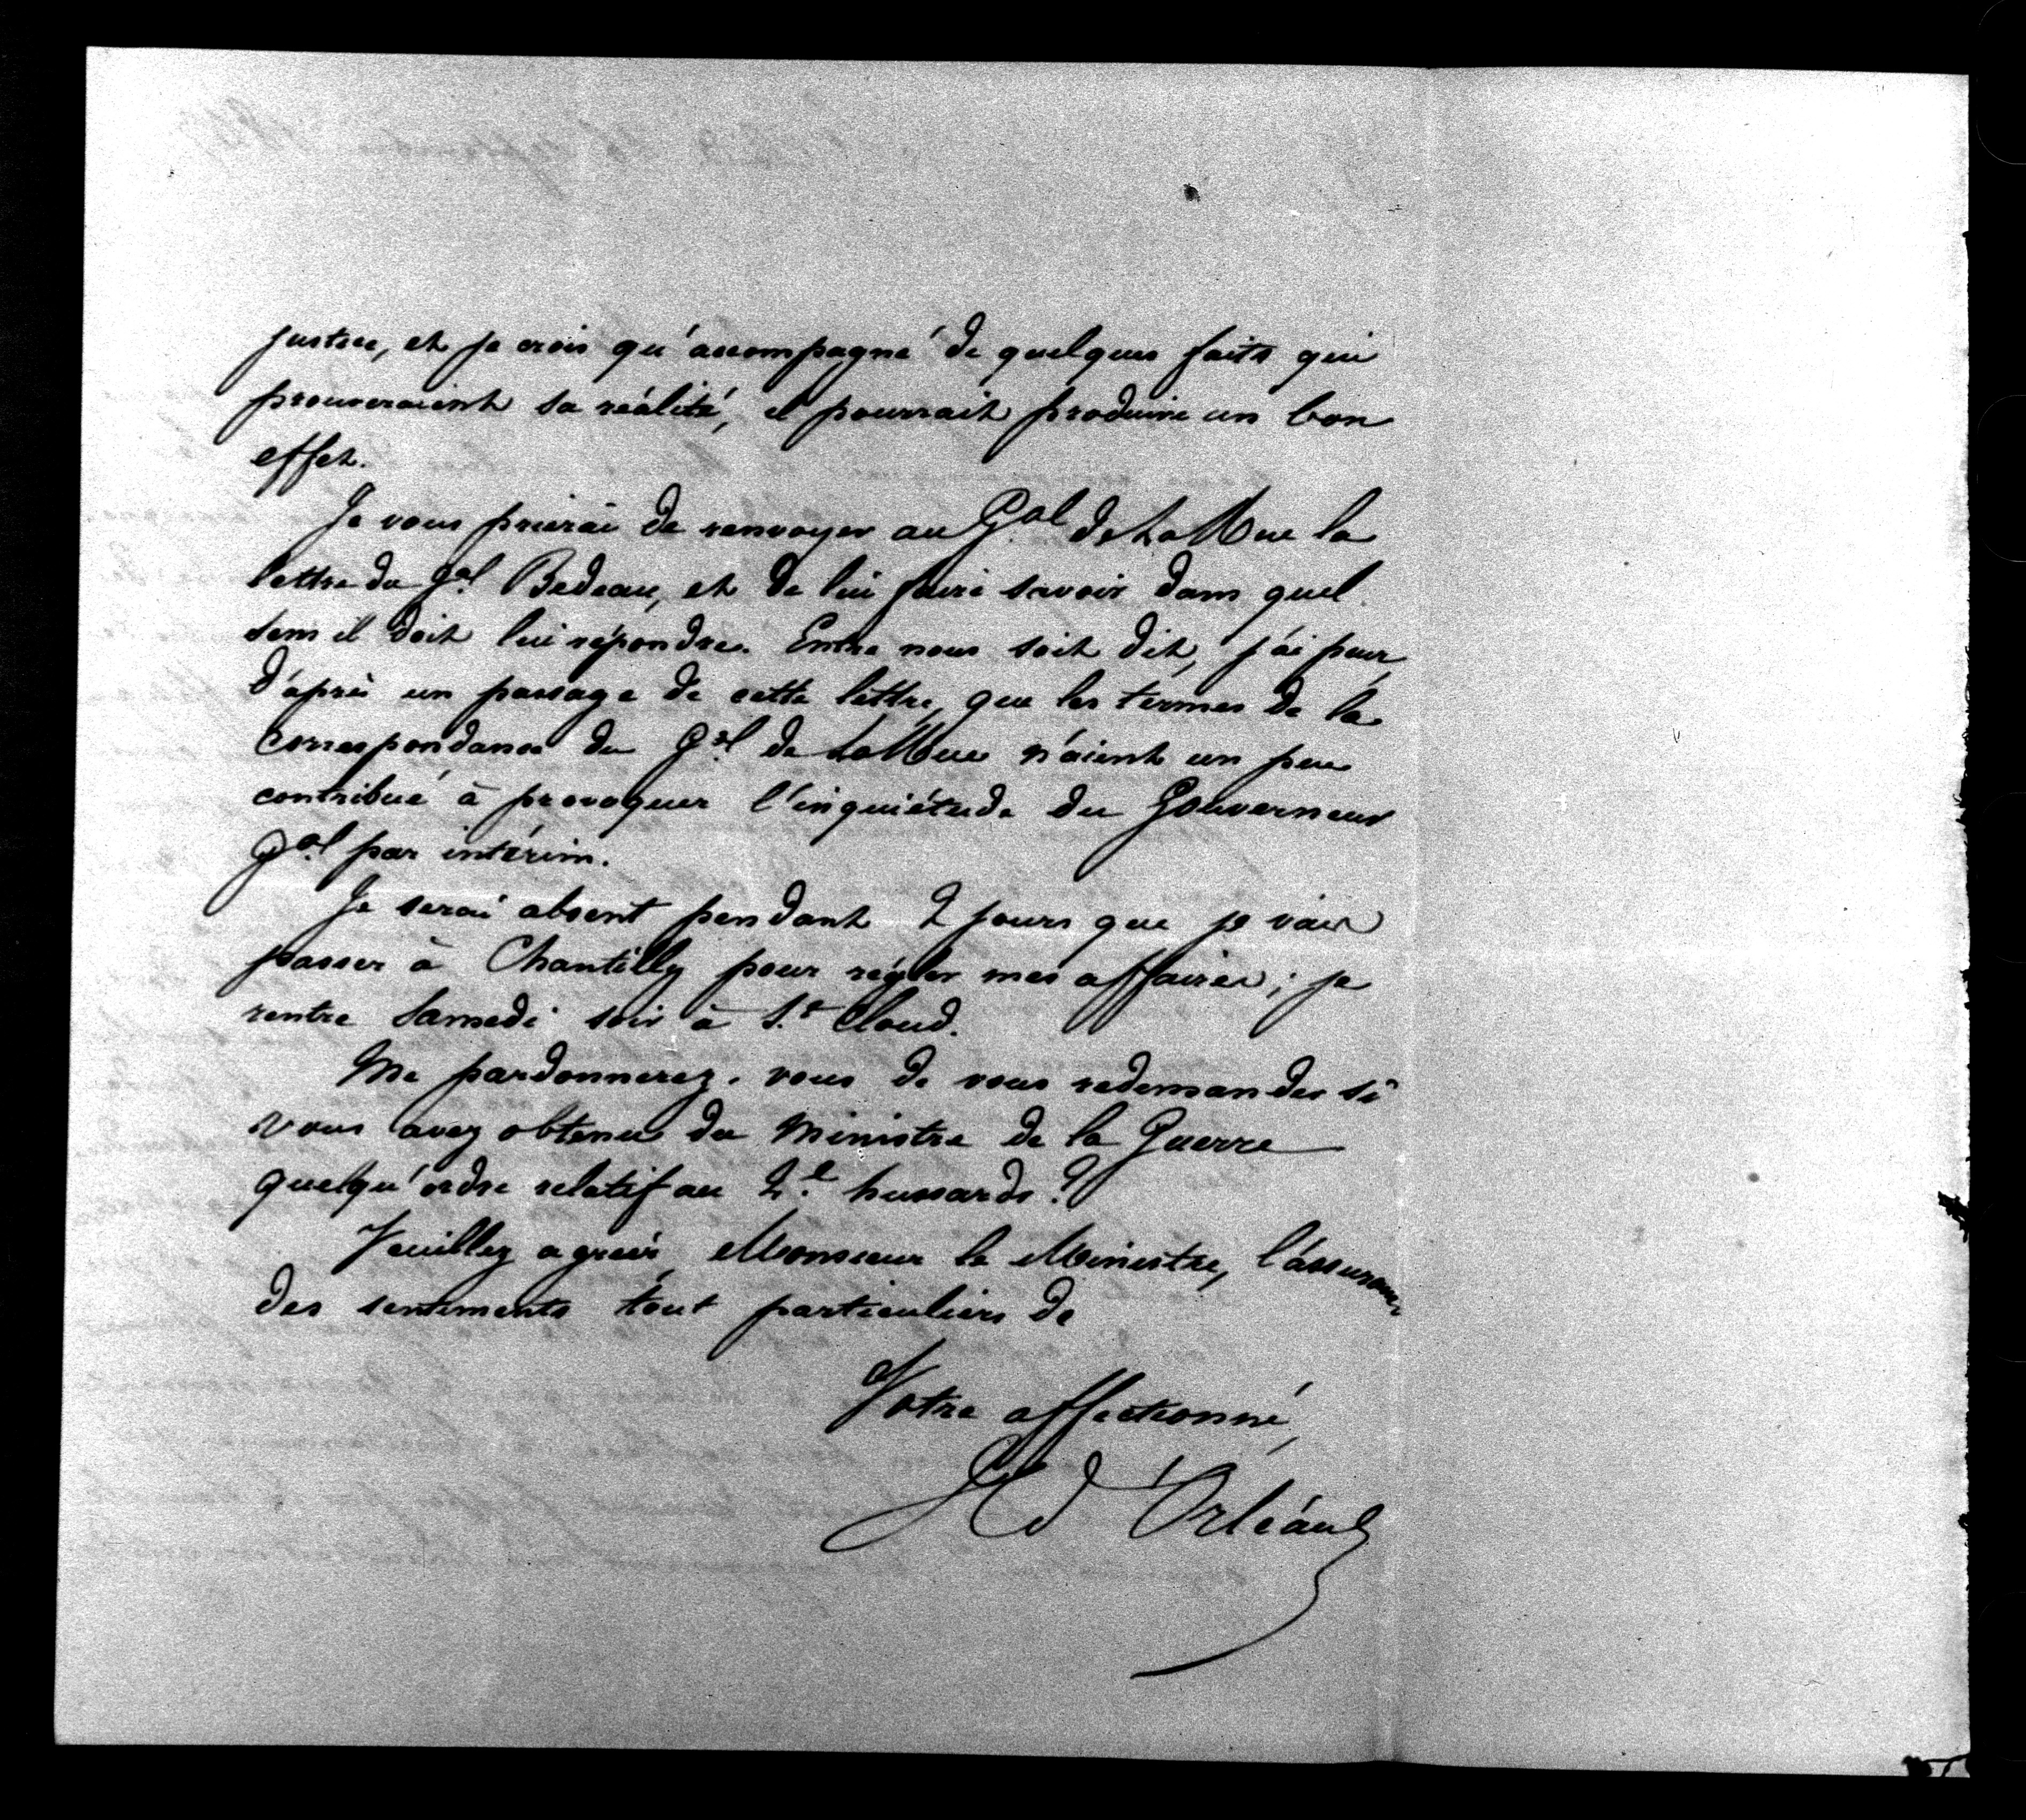 justice, et je crois qu'accompagné de quelques faits qui
prouveraient sa réalité, il pourrait produire un bon
effet.
Je vous prierai de renvoyer au Gal de La Rue la
lettre du Gal Bedeau, et de lui faire savoir dans quel
sens il doit lui répondre. Entre nous soit dit, j'ai peur,
d'après un passage de cette lettre, que les termes de la
correspondance du Gal de La Rue n'aient un peu
contribué à provoquer l'inquiétude du Gouverneur
Gal par intérim.
Je serai absent pendant 2 jours que je vais
passer à Chantilly pour régler mes affaires; je
rentre Samedi soir à St Cloud.
Me pardonnerez-vous de vous redemander si
vous avez obtenu du Ministre de la Guerre
quelqu'ordre relatif au 2e hussards?
Veuillez agréer, Monsieur le Ministre, l'assurance
des sentiments tout particuliers de
Votre affectionné,
H d'Orléans